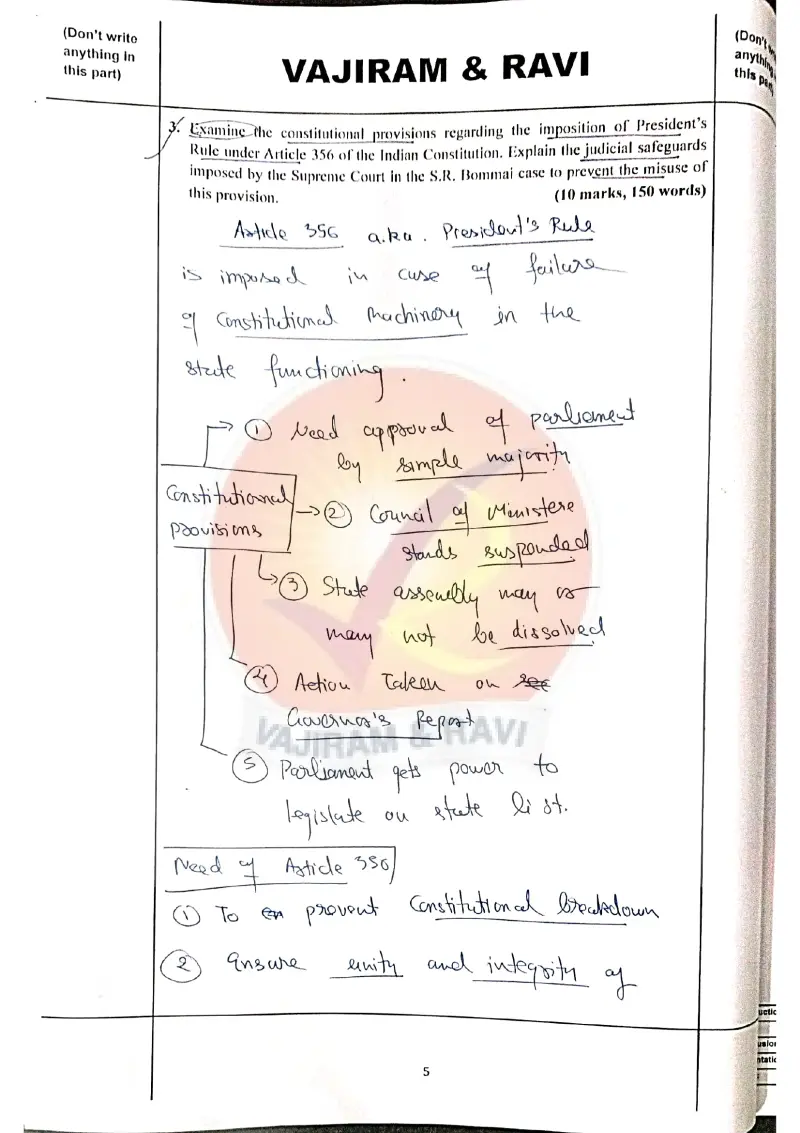 (Don't write
anything in
this part)
VAJIRAM & RAVI
(Don't
anything
this part
3. Examine the constitutional provisions regarding the imposition of President's
Rule under Article 356 of the Indian Constitution. Explain the judicial safeguards
imposed by the Supreme Court in the S.R. Bommai case to prevent the misuse of
this provision. (10 marks, 150 words)
Article 356 a.k.a. President's Rule
is imposed in case of failure
of Constitutional Machinery in the
state functioning.
→ ① Need approval of parliament
by simple majority
Constitutional
provisions
→ ② Council of Ministers
stands suspended
→ ③ State assembly may or
may not be dissolved
④ Action Taken on
Governor's Report
VAJIRAM & RAVI
⑤ Parliament gets power to
legislate on state list.
Need of Article 356
① To prevent Constitutional breakdown
② Ensure unity and integrity of
5